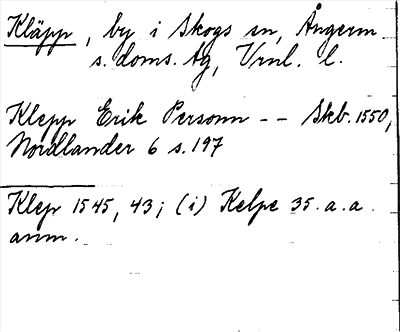 Kläpp, by i Skogs sn, Ångerm.
s. doms. tg, Vrnl. l.
Klepp Erik Personn -- Skb. 1550,
Nordlander 6 s. 197
Klep 1545, 43; (i) Kelpe 35. a. a.
anm.